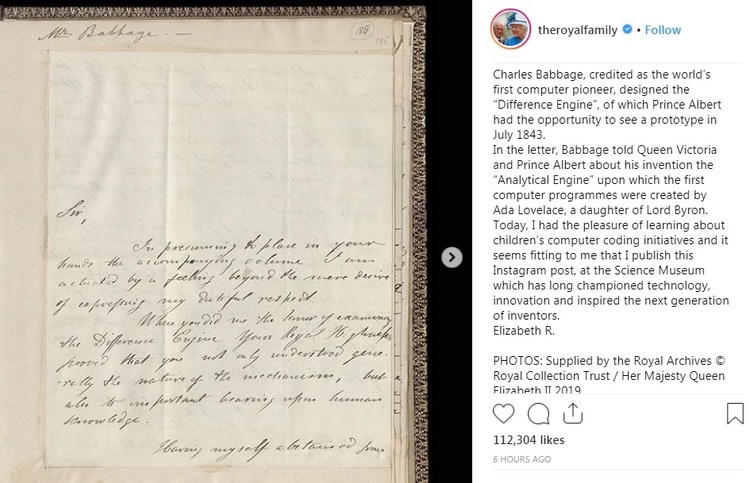 Mr Babbage. —
186
186
Sir,
In presuming to place in your
hands the accompanying volume I am
actuated by a feeling beyond the mere desire
of expressing my dutiful respect.
When you did me the honor of examining
the Difference Engine Your Royal Highness
proved that you not only understood gene-
rally the nature of the mechanism, but
also its important bearing upon human
knowledge.
Having myself abstained from
theroyalfamily • Follow
Charles Babbage, credited as the world's
first computer pioneer, designed the
“Difference Engine”, of which Prince Albert
had the opportunity to see a prototype in
July 1843.
In the letter, Babbage told Queen Victoria
and Prince Albert about his invention the
“Analytical Engine” upon which the first
computer programmes were created by
Ada Lovelace, a daughter of Lord Byron.
Today, I had the pleasure of learning about
children's computer coding initiatives and it
seems fitting to me that I publish this
Instagram post, at the Science Museum
which has long championed technology,
innovation and inspired the next generation
of inventors.
Elizabeth R.
PHOTOS: Supplied by the Royal Archives ©
Royal Collection Trust / Her Majesty Queen
Elizabeth II 2019
112,304 likes
6 HOURS AGO